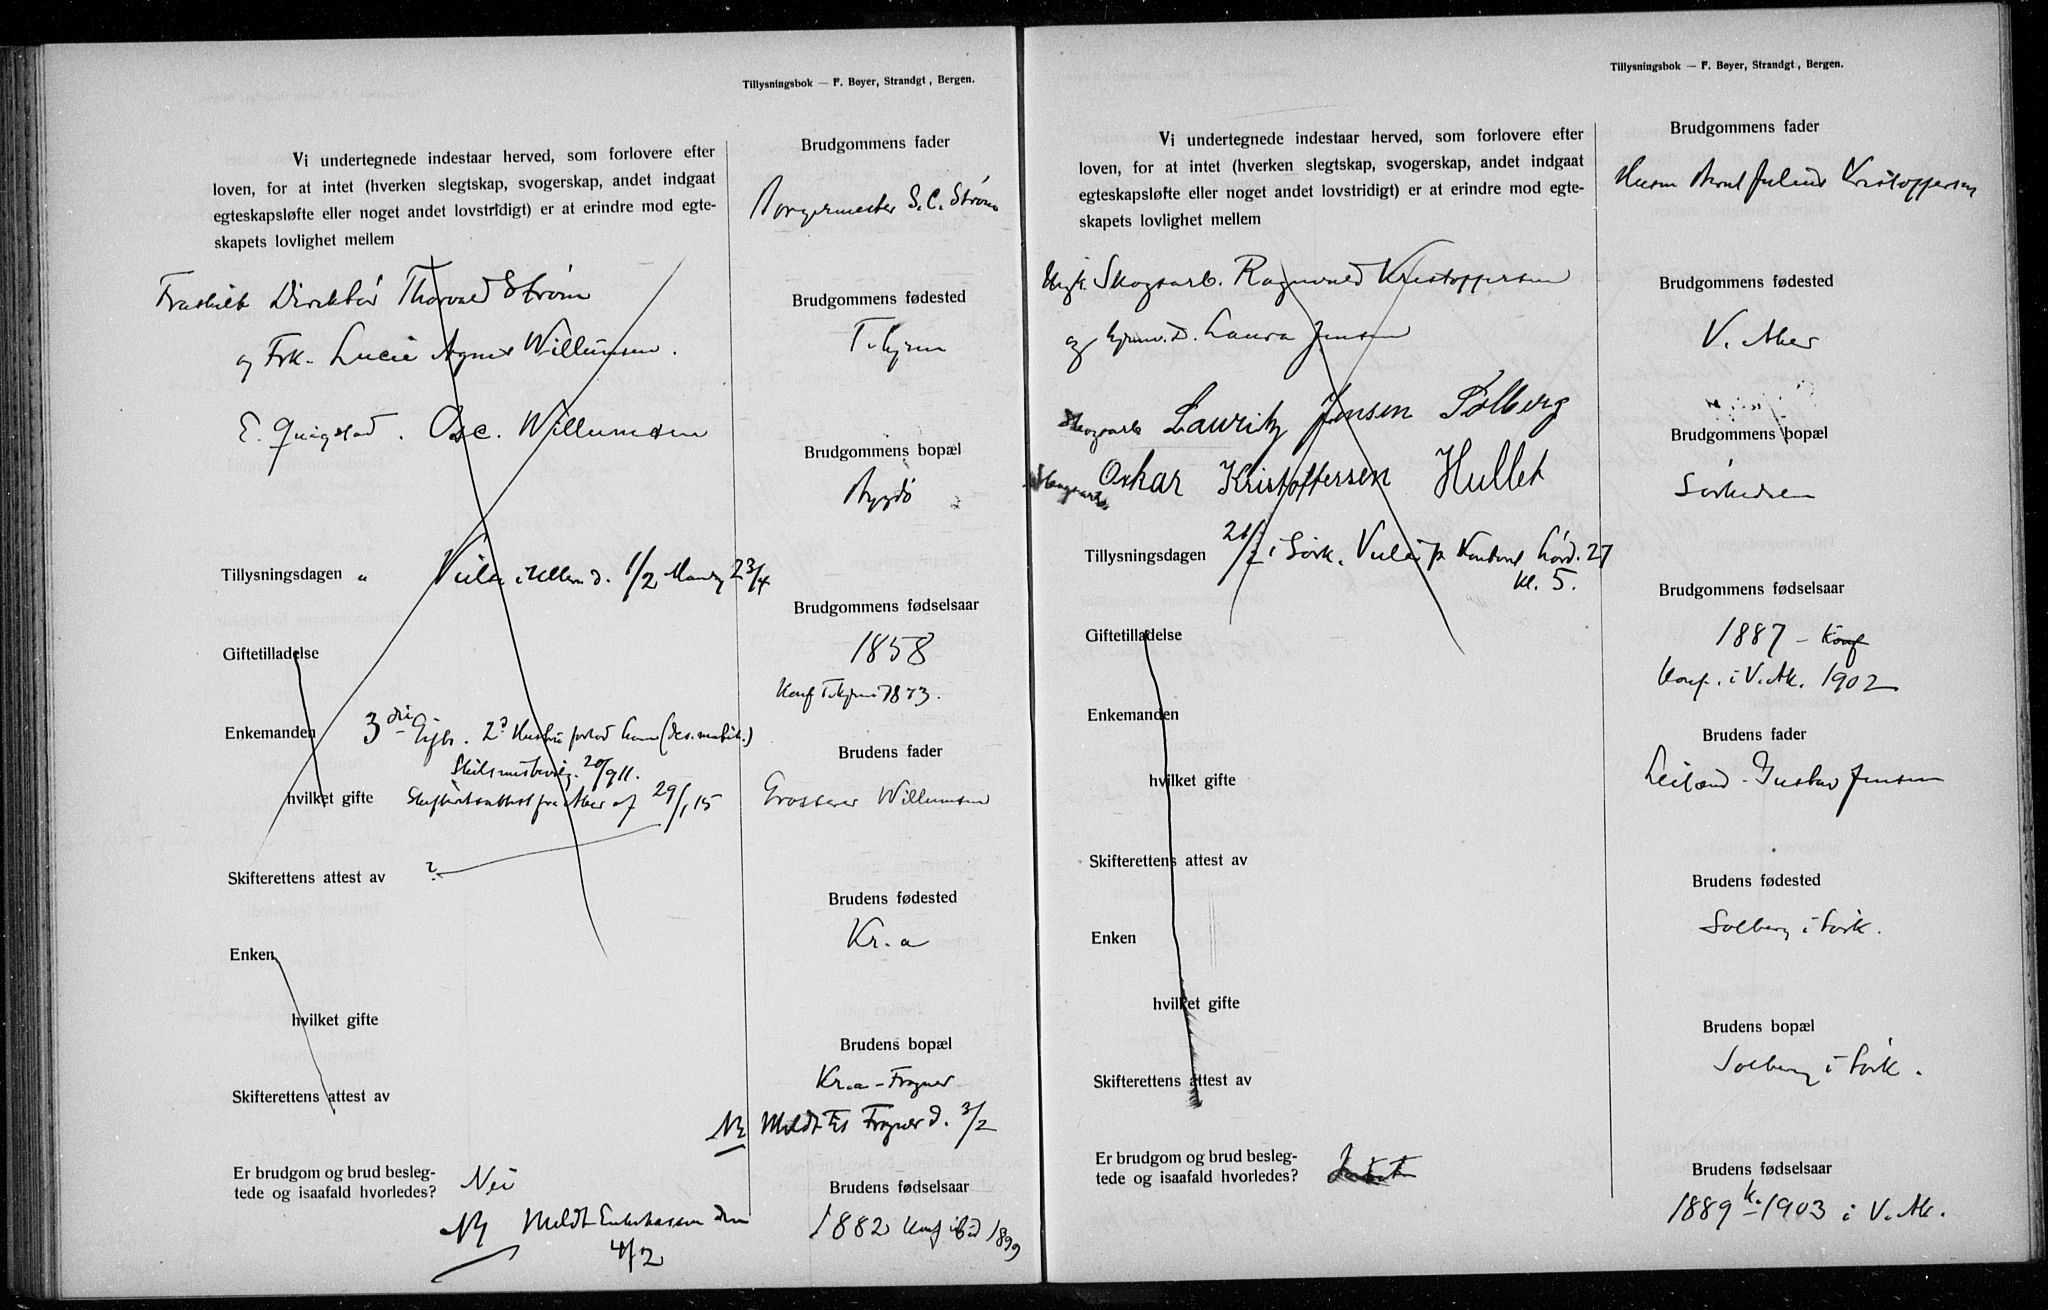 Tillysningsbok — F. Beyer, Strandgt, Bergen.
Vi undertegnede indestaar herved, som forlovere efter
loven, for at intet (hverken slegtskap, svogerskap, andet indgaat
egteskapsløfte eller noget andet lovstridigt) er at erindre mod egte-
skapets lovlighet mellem
Fraskilt Direktør Thorvald Strøm
og Frk. Lucie Agnes Willumsen.
E. Qvigstad. Osc. Willumsen
Tillysningsdagen " Vielse i Ullern d. 1/2 23/4
Giftetilladelse
Enkemanden 3die Egts. 2d Hustru forlod ham
20/9 11.
hvilket gifte Skifteretsattest fra Aker af 29/1 15
Skifterettens attest av ?
Enken
hvilket gifte
Skifterettens attest av
Er brudgom og brud besleg-
tede og isaafald hvorledes? Nei
NB Meldt Enkekassen den
4/2
Brudgommens fader
Borgermester S. C. Strøm
Brudgommens fødested
T. hjem
Brudgommens bopæl
Bygdø
Brudgommens fødselsaar
1858
Konf T. hjem 1873.
Brudens fader
Grosserer Willumsen
Brudens fødested
Kr.a
Brudens bopæl
Kr.a - Frogner
NB Meldt til Frogner d. 3/2
Brudens fødselsaar
1882 Konf ibid 1899
Tillysningsbok — F. Beyer, Strandgt, Bergen.
Vi undertegnede indestaar herved, som forlovere efter
loven, for at intet (hverken slegtskap, svogerskap, andet indgaat
egteskapsløfte eller noget andet lovstridigt) er at erindre mod egte-
skapets lovlighet mellem
Ungk. Skogsarb. Ragnvald Kristoffersen
og Laura Jensen
Skogsarb Lauritz Jensen Solberg
Skogsarb Oskar Kristoffersen Hullet
Tillysningsdagen 21/2 i Sørk. Vielse p Kontoret Lørd. 27
kl. 5.
Giftetilladelse
Enkemanden
hvilket gifte
Skifterettens attest av
Enken
hvilket gifte
Skifterettens attest av
Er brudgom og brud besleg-
tede og isaafald hvorledes?
Brudgommens fader
Husm Bernt Julius Kristoffersen
Brudgommens fødested
V. Aker
Brudgommens bopæl
Sørkedalen
Brudgommens fødselsaar
1887 - Konf
Konf. i V. Ak. 1902
Brudens fader
Leilænd. Gustav Jensen
Brudens fødested
Solberg i Sørk.
Brudens bopæl
Solberg i Sørk.
Brudens fødselsaar
1889 k. 1903 i V. Ak.